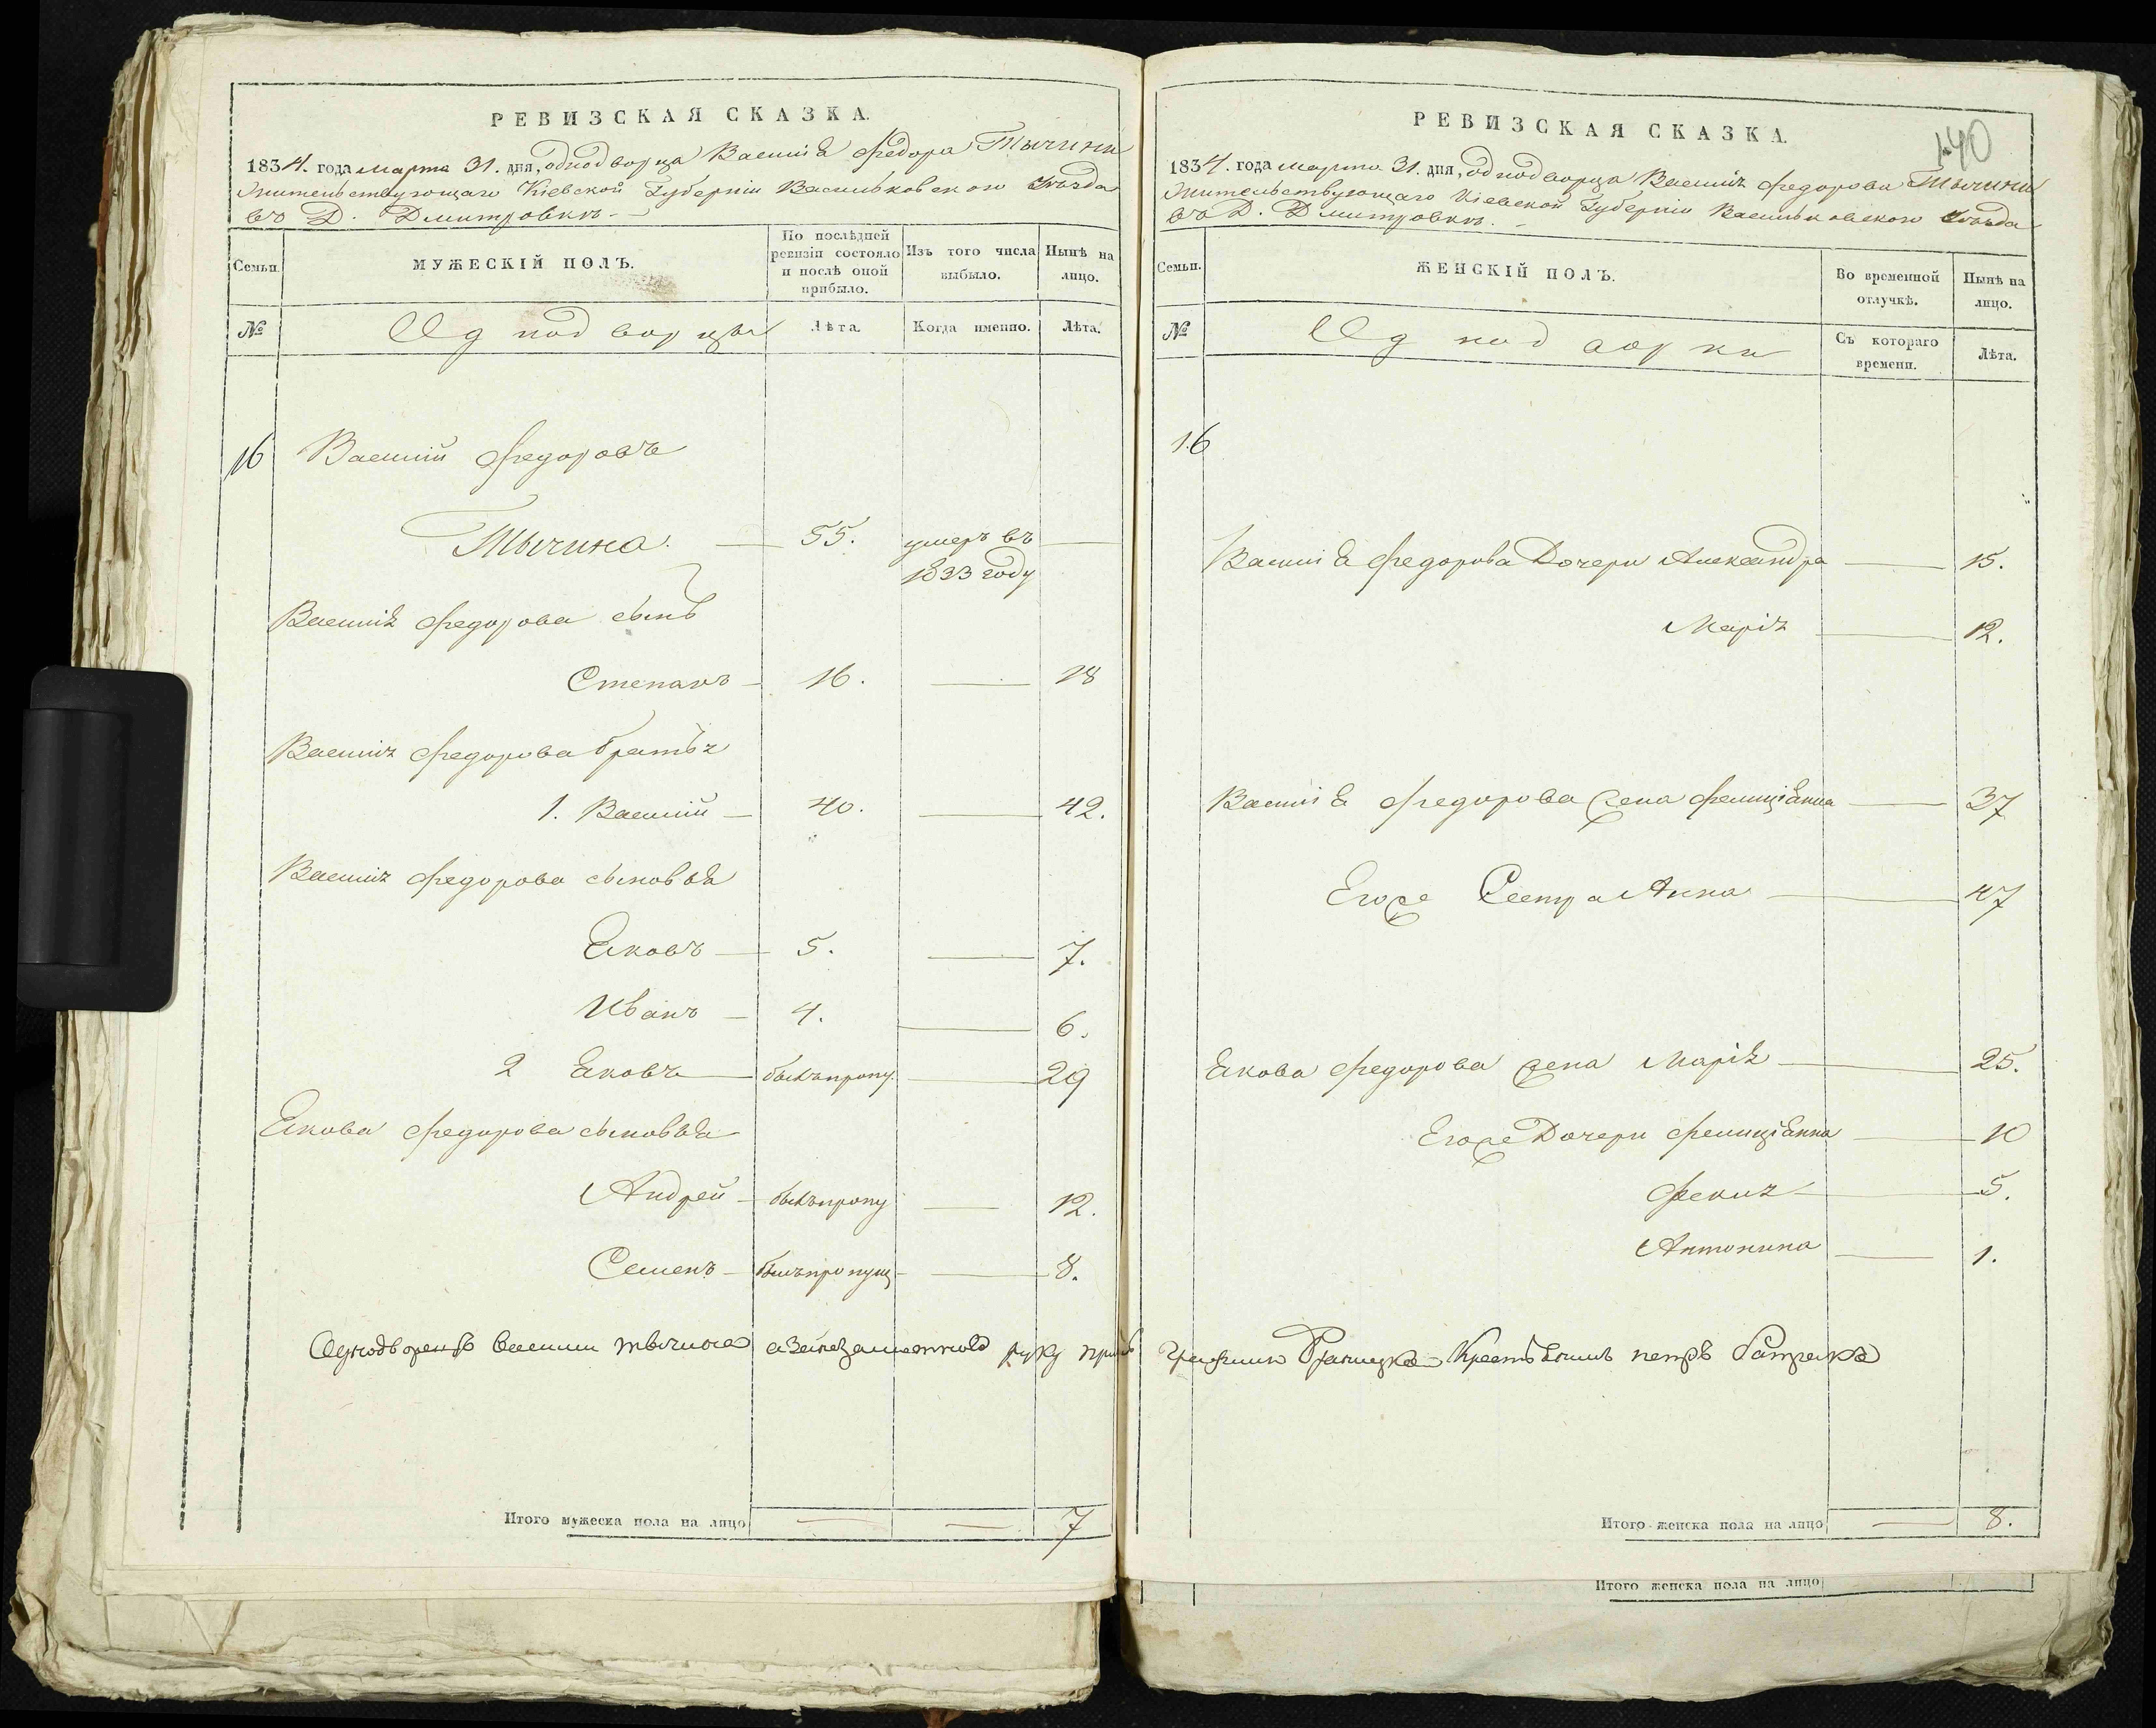 РЕВИЗСКАЯ СКАЗКА.
1834. года марта 31. дня, однодворца Василія Федора Тычины
Жительствующаго Кіевской Губерніи Васильковского Уѣзда
въ Д. Дмитровкѣ.
Семьи.
МУЖЕСКІЙ ПОЛЪ.
По послѣдней ревизіи состояло и послѣ оной прибыло.
Изъ того числа выбыло.
Нынѣ на лицо.
№
Однодворцы
Лѣта.
Когда именно.
Лѣта.
16 Василій Федоровъ
Тычина. 55. умеръ въ
1833 году
Василія Федорова сынъ
Степанъ 16. 18
Василія Федорова братья
1. Василій 40. 42.
Василія Федорова сыновья
Яковъ 5. 7.
Иванъ 4. 6.
2 Яковъ былъ пропу. 29
Якова Федорова сыновья
Андрей былъ пропу 12.
Семенъ былъ пропущ 8.
Однодворецъ Василии тычина руку
Итого мужеска пола на лицо 7
РЕВИЗСКАЯ СКАЗКА.
140
1834. года марта 31. дня, однодворца Василія Федорова Тычины
Жительствующаго Кіевской Губерніи Васильковского Уѣзда
въ Д. Дмитровкѣ.
Семьи.
ЖЕНСКІЙ ПОЛЪ.
Во временной отлучкѣ.
Нынѣ на лицо.
№
Однодворки
Съ котораго времени.
Лѣта.
16
Василія Федорова Дочери Александра 15.
Марія 12.
Василія Федорова жена Фелиціянна 37
Егоже Сестра Анна 47
Якова Федорова жена Марія 25.
Егоже Дочери Фелиціянна 10
Фекия 5.
Антонина 1.
Браницкой Крестьянинъ петръ
Итого женска пола на лицо 8.
Итого женска пола на лицо